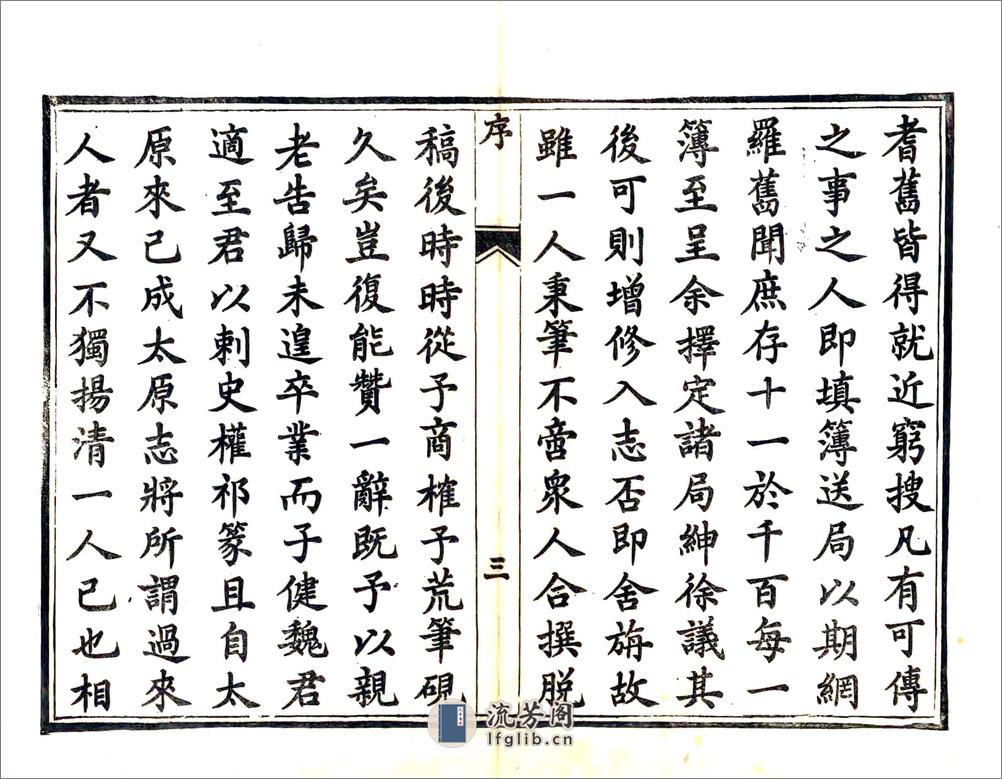 耆舊皆得就近窮搜凡有可傳
之事之人即填簿送局以期網
羅舊聞庶存十一於千百每一
簿至呈余擇定諸局紳徐議其
後可則增修入志否即舍旃故
雖一人秉筆不啻衆人合撰脱
序
三
稿後時時從予商榷予荒筆硯
久矣豈復能贊一辭既予以親
老告歸未遑卒業而子健魏君
適至君以刺史權祁篆且自太
原來已成太原志將所謂過來
人者又不獨揚清一人已也相
流芳阁
lfglib.cn